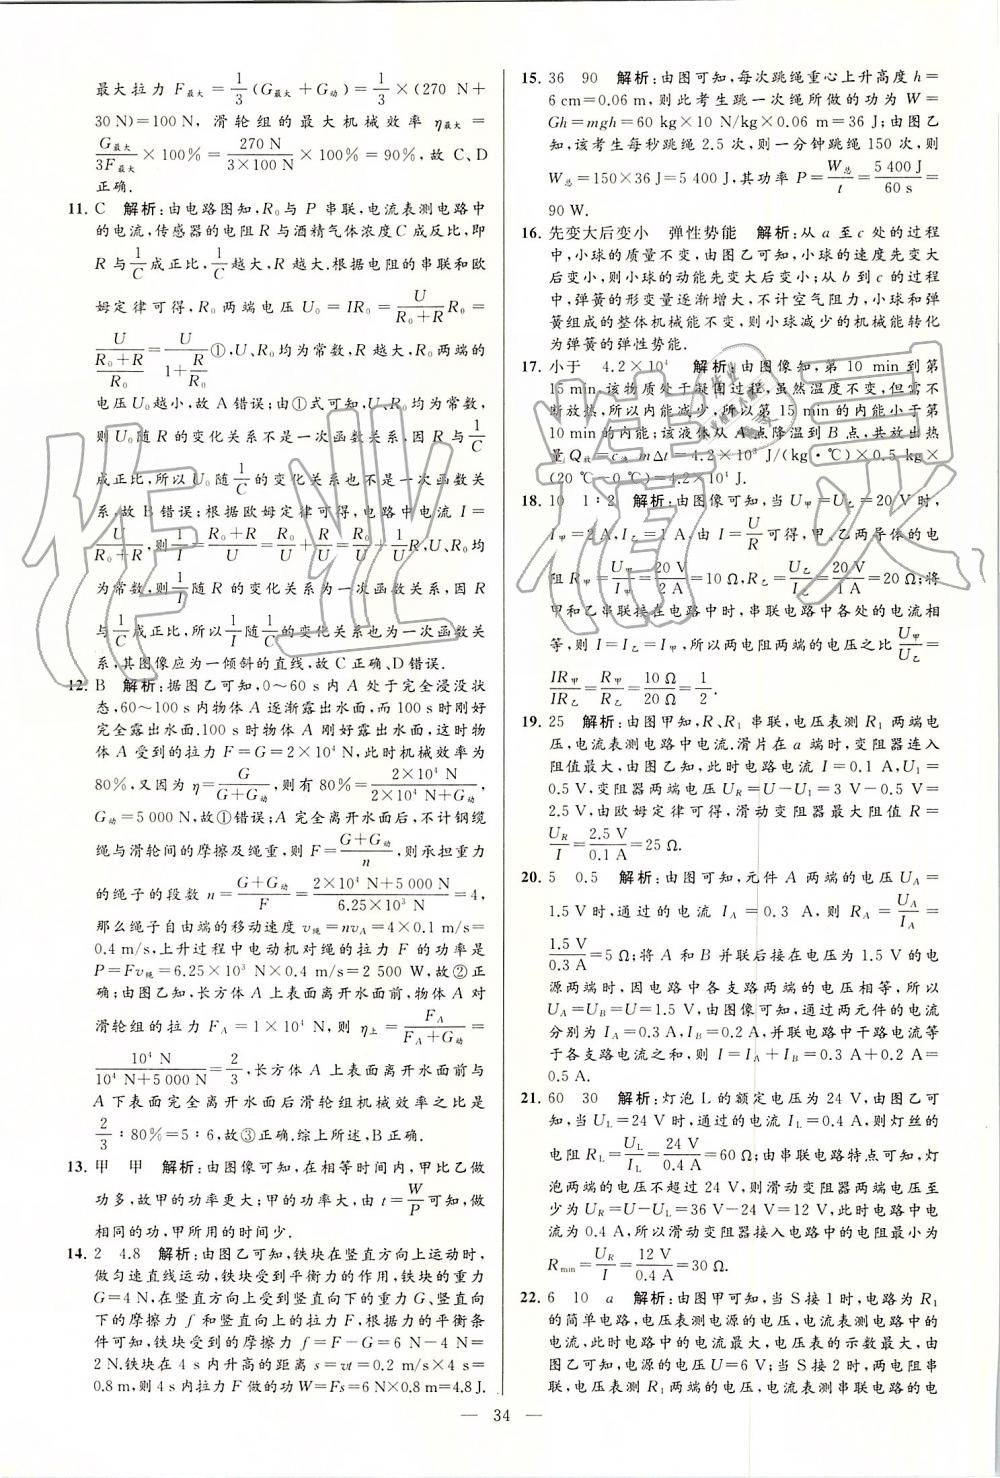 最大拉力 F最大=1/3(G最大+G动)=1/3×(270 N+
30 N)=100 N，滑轮组的最大机械效率 η最大=
G最大/3F最大×100%=270 N/(3×100 N)×100%=90%，故 C、D
正确.
11. C 解析:由电路图知,R₀与 P 串联,电流表测电路中
的电流,传感器的电阻 R 与酒精气体浓度 C 成反比,即
R 与 1/C 成正比,1/C 越大,R 越大.根据电阻的串联和欧
姆定律可得,R₀ 两端电压 U₀=IR₀=U/(R₀+R) R₀=
U/((R₀+R)/R₀)=U/(1+R/R₀)①,U、R₀均为常数,R 越大,R₀ 两端的
电压U₀越小,故 A 错误;由①式可知,U、R₀均为常数,
则 U₀随 R 的变化关系不是一次函数关系,因 R 与 1/C
成正比,所以 U₀随 1/C 的变化关系也不是一次函数关
系,故 B 错误;根据欧姆定律可得,电路中电流 I=
U/(R₀+R),则 1/I=(R₀+R)/U=R₀/U+R/U=R₀/U+1/U R,U、R₀均
为常数,则 1/I 随 R 的变化关系为一次函数关系,因 R
与 1/C 成正比,所以 1/I 随 1/C 的变化关系也为一次函数关
系,其图像应为一倾斜的直线,故 C 正确、D 错误.
12. B 解析:据图乙可知,0～60 s 内 A 处于完全浸没状
态,60～100 s 内物体 A 逐渐露出水面,而 100 s时刚好
完全露出水面.100 s时物体 A 刚好露出水面,这时物
体 A 受到的拉力 F=G=2×10⁴ N,此时机械效率为
80%,又因为 η=G/(G+G动),则有 80%=2×10⁴ N/(2×10⁴ N+G动),
G动=5 000 N,故①错误;A 完全离开水面后,不计钢缆
绳与滑轮间的摩擦及绳重,则 F=(G+G动)/n,则承担重力
的绳子的段数 n=(G+G动)/F=(2×10⁴ N+5 000 N)/(6.25×10³ N)=4,
那么绳子自由端的移动速度 v绳=nvA=4×0.1 m/s=
0.4 m/s,上升过程中电动机对绳的拉力 F 的功率是
P=Fv绳=6.25×10³ N×0.4 m/s=2 500 W,故②正
确;由图乙知,长方体 A 上表面离开水面前,物体 A 对
滑轮组的拉力 FA=1×10⁴ N,则 η上=FA/(FA+G动)=
10⁴ N/(10⁴ N+5 000 N)=2/3,长方体 A 上表面离开水面前与
A 下表面完全离开水面后滑轮组机械效率之比是
2/3∶80%=5∶6,故③正确.综上所述,B正确.
13. 甲 甲 解析:由图像可知,在相等时间内,甲比乙做
功多,故甲的功率更大;甲的功率大,由 t=W/P可知,做
相同的功,甲所用的时间少.
14. 2 4.8 解析:由图乙可知,铁块在竖直方向上运动时,
做匀速直线运动,铁块受到平衡力的作用,铁块的重力
G=4 N,在竖直方向上受到竖直向下的重力 G、竖直向
下的摩擦力 f 和竖直向上的拉力 F,根据力的平衡条
件可知,铁块受到的摩擦力 f=F-G=6 N-4 N=
2 N.铁块在 4 s 内升高的距离 s=vt=0.2 m/s×4 s=
0.8 m,则 4 s内拉力 F 做的功 W=Fs=6 N×0.8 m=4.8 J.
15. 36 90 解析:由图可知,每次跳绳重心上升高度 h=
6 cm=0.06 m,则此考生跳一次绳所做的功为 W=
Gh=mgh=60 kg×10 N/kg×0.06 m=36 J;由图乙
知,该考生每秒跳绳 2.5 次,则一分钟跳绳 150 次,则
W总=150×36 J=5 400 J,其功率 P=W总/t=5 400 J/60 s=
90 W.
16. 先变大后变小 弹性势能 解析:从 a 至 c 处的过程
中,小球的质量不变,由图乙可知,小球的速度先变大
后变小,则小球的动能先变大后变小;从 b 到 c 的过程
中,弹簧的形变量逐渐增大,不计空气阻力,小球和弹
簧组成的整体机械能不变,则小球减少的机械能转化
为弹簧的弹性势能.
17. 小于 4.2×10⁴ 解析:由图像知,第 10 min 到第
15 min,该物质处于凝固过程,虽然温度不变,但需不
断放热,所以内能减少,所以第 15 min 的内能小于第
10 min的内能;该液体从 A 点降温到 B 点,共放出热
量 Q放=cA mΔt=4.2×10³ J/(kg·℃)×0.5 kg×
(20 ℃-0 ℃)=4.2×10⁴ J.
18. 10 1∶2 解析:由图像可知,当 U甲=U乙=20 V时,
I甲=2 A,I乙=1 A,由 I=U/R可得,甲、乙两导体的电
阻 R甲=U甲/I甲=20 V/2 A=10 Ω,R乙=U乙/I乙=20 V/1 A=20 Ω;将
甲和乙串联接在电路中时,串联电路中各处的电流相
等,则 I=I乙=I甲,所以两电阻两端的电压之比U甲/U乙=
IR甲/IR乙=R甲/R乙=10 Ω/20 Ω=1/2.
19. 25 解析:由图甲知,R、R₁ 串联,电压表测 R₁ 两端电
压,电流表测电路中电流.滑片在 a 端时,变阻器连入
阻值最大,由图乙知,此时电路电流 I=0.1 A,U₁=
0.5 V,变阻器两端电压 UR=U-U₁=3 V-0.5 V=
2.5 V,由欧姆定律可得,滑动变阻器最大阻值 R=
UR/I=2.5 V/0.1 A=25 Ω.
20. 5 0.5 解析:由图可知,元件 A 两端的电压 UA=
1.5 V 时,通过的电流 IA=0.3 A,则 RA=UA/IA=
1.5 V/0.3 A=5 Ω;将 A 和 B 并联后接在电压为 1.5 V 的电
源两端时,因电路中各支路两端的电压相等,所以
UA=UB=U=1.5 V,由图像可知,通过两元件的电流
分别为 IA=0.3 A,IB=0.2 A,并联电路中干路电流等
于各支路电流之和,则 I=IA+IB=0.3 A+0.2 A=
0.5 A.
21. 60 30 解析:灯泡 L 的额定电压为 24 V,由图乙可
知,当 UL=24 V 时,通过的电流 IL=0.4 A,则灯丝的
电阻 RL=UL/IL=24 V/0.4 A=60 Ω;由串联电路特点可知,灯
泡两端的电压不超过 24 V,则滑动变阻器两端电压至
少为 UR=U-UL=36 V-24 V=12 V,此时电路中电
流为 0.4 A,所以滑动变阻器接入电路中的电阻最小为
Rmin=UR/I=12 V/0.4 A=30 Ω.
22. 6 10 a 解析:由图甲可知,当 S 接 1 时,电路为 R₁
的简单电路,电压表测电源的电压,电流表测电路中的
电流,此时电路中的电流最大,电压表的示数最大,由
图乙可知,电源的电压 U=6 V;当 S 接 2 时,两电阻串
联,电压表测 R₁ 两端的电压,电流表测串联电路的电
— 34 —
作业精灵